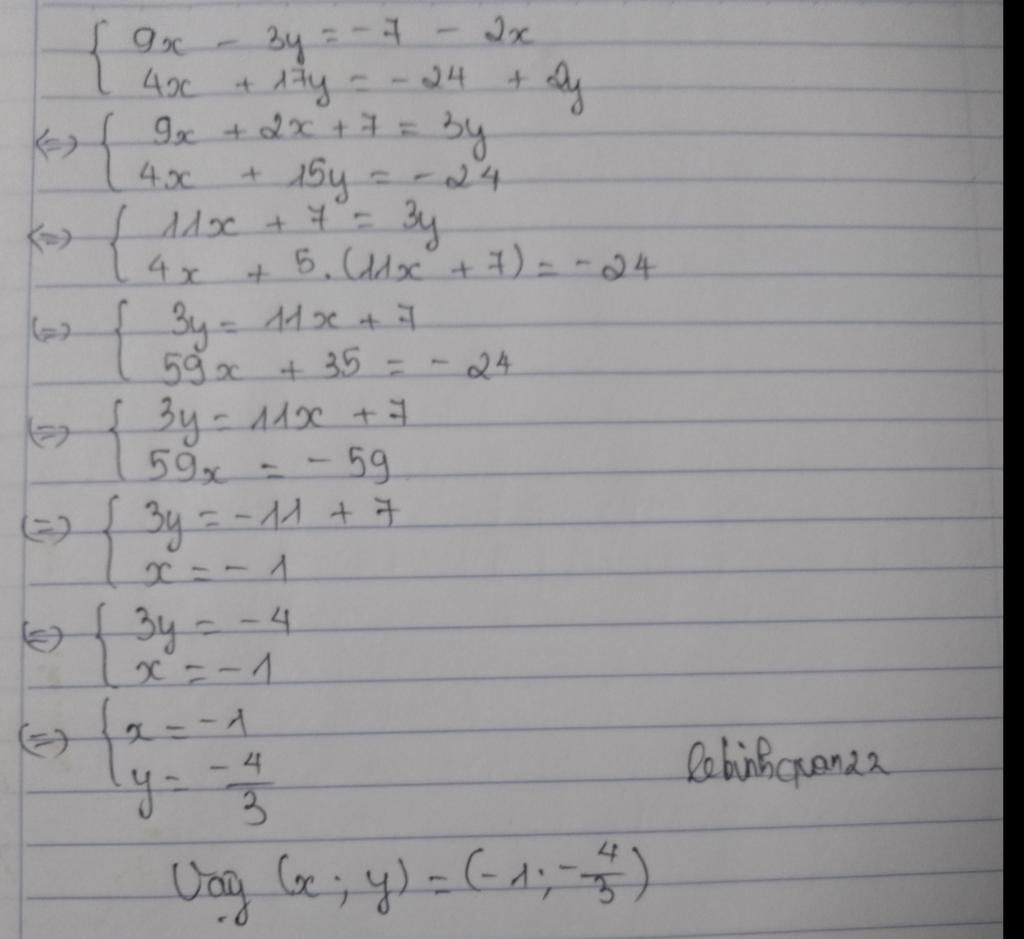 { 9x - 3y = -7 - 2x
4x + 17y = -24 + 2y
<=> { 9x + 2x + 7 = 3y
4x + 15y = -24
<=> { 11x + 7 = 3y
4x + 5.(11x + 7) = -24
<=> { 3y = 11x + 7
59x + 35 = -24
<=> { 3y = 11x + 7
59x = -59
<=> { 3y = -11 + 7
x = -1
<=> { 3y = -4
x = -1
<=> { x = -1
y = -4/3
lebinhcpan22
Vậy (x ; y) = (-1 ; -4/3)